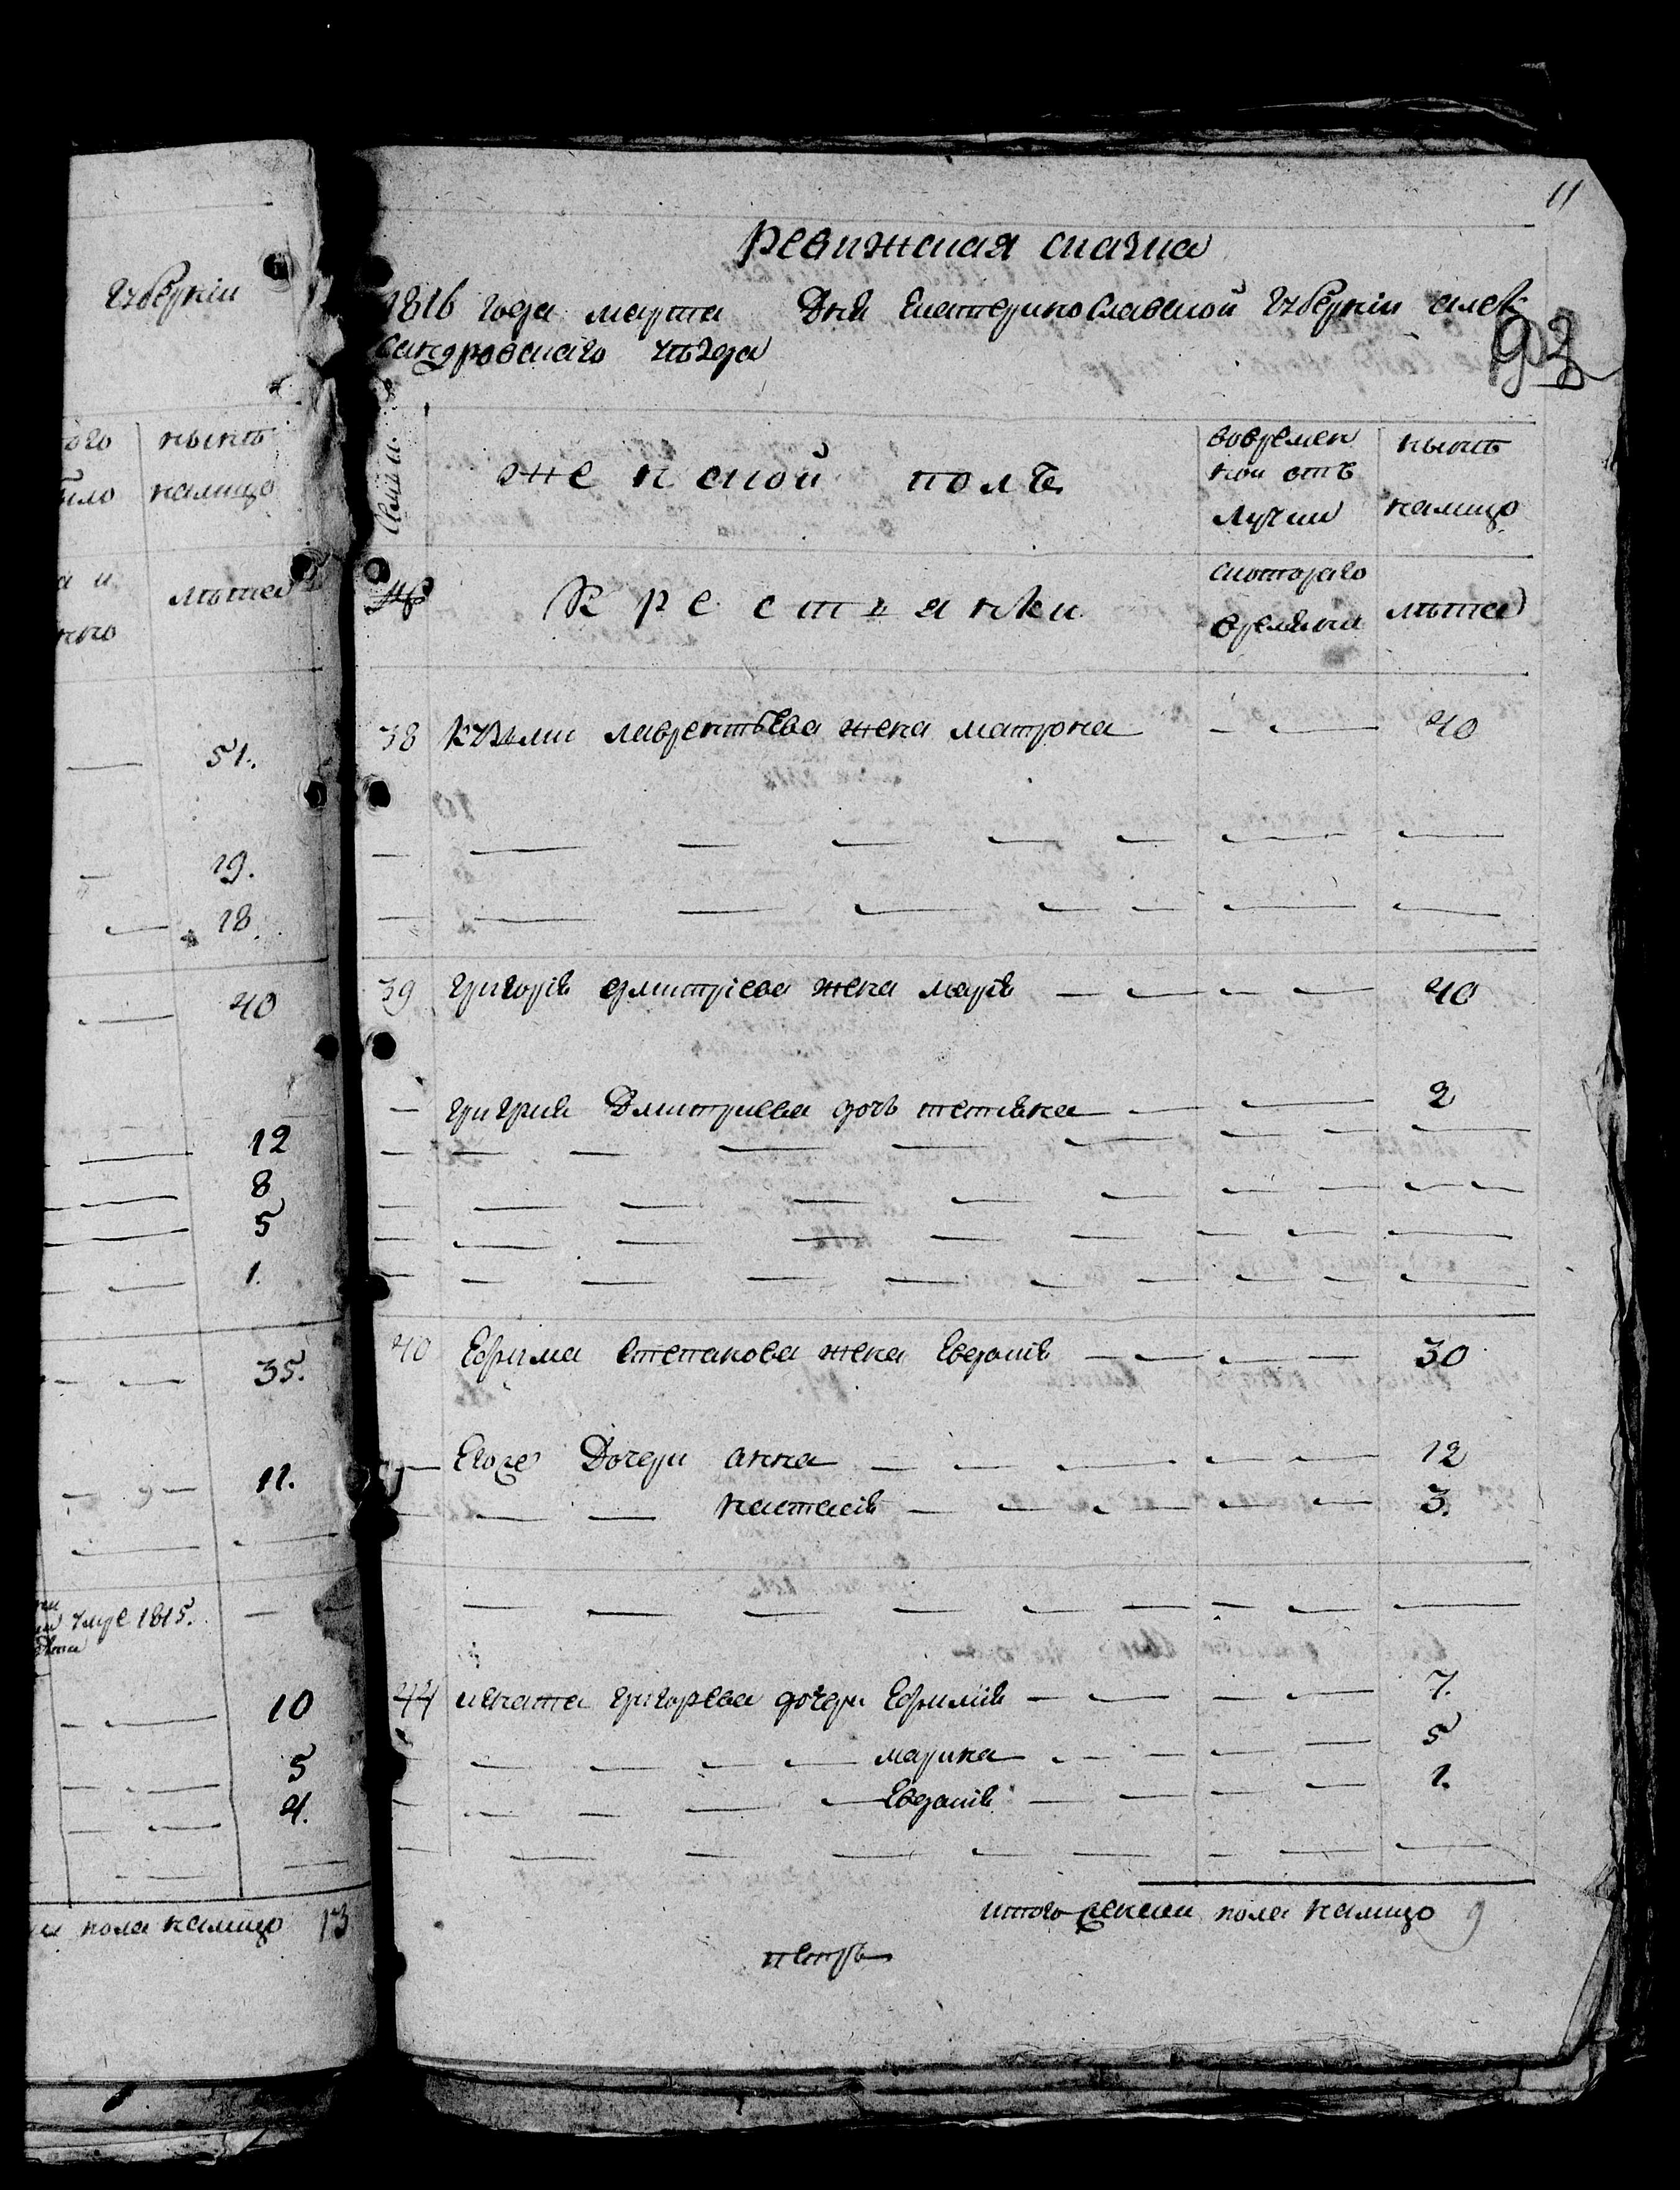 Губернiи
ого нынѣ
было налицо
а и лѣта
51.
19.
18.
40
12
8
5
1.
35.
11.
1815.
10
5
4.
пола налицо 13
11
Ревижская сказка
1816 года марта Дня Екатеринославской Губернiи алек
сандровскаго уѣзда
92
Семьи
женской полъ
вовремен
ной отъ
Лучки
нынѣ
налицо
Крестьянки
скотораго
времѣни
лѣта
38 Кузьмы лаврентьева жена матрона 40
39 григорiя дмитрiева жена марiя 40
григрия Дмитриева дочь тетяна 2
40 Ефима степанова жена Евдокiя 30
Егоже Дочери анна 12
настасiя 3.
44 игната григорева дочери Ефимiя 7.
марина 5
Евдокiя 1.
итого женска пола налицо 9
петръ